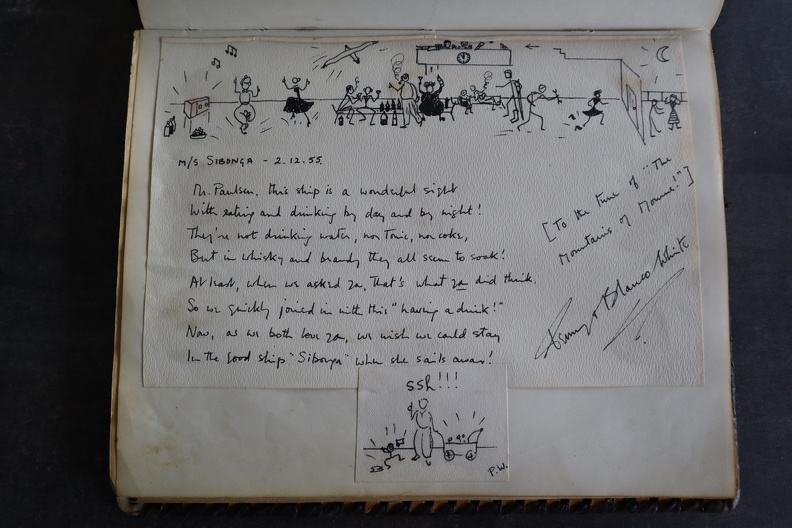 M/S SIBONGA - 2.12.55.
Mr. Paulsen, this ship is a wonderful sight
With eating and drinking by day and by night!
They're not drinking water, nor Tonic, nor coke,
But in whisky and brandy they all seem to soak!
At least, when we asked za, That's what za did think.
So we quickly joined in with this "having a drink!"
Now, as we both love za, we wish we could stay
In the good ship "Sibonga" when she sails away!
[To the tune of "The
Mountains of Mourne!"]
Blanco White
ssh!!!
P.W.